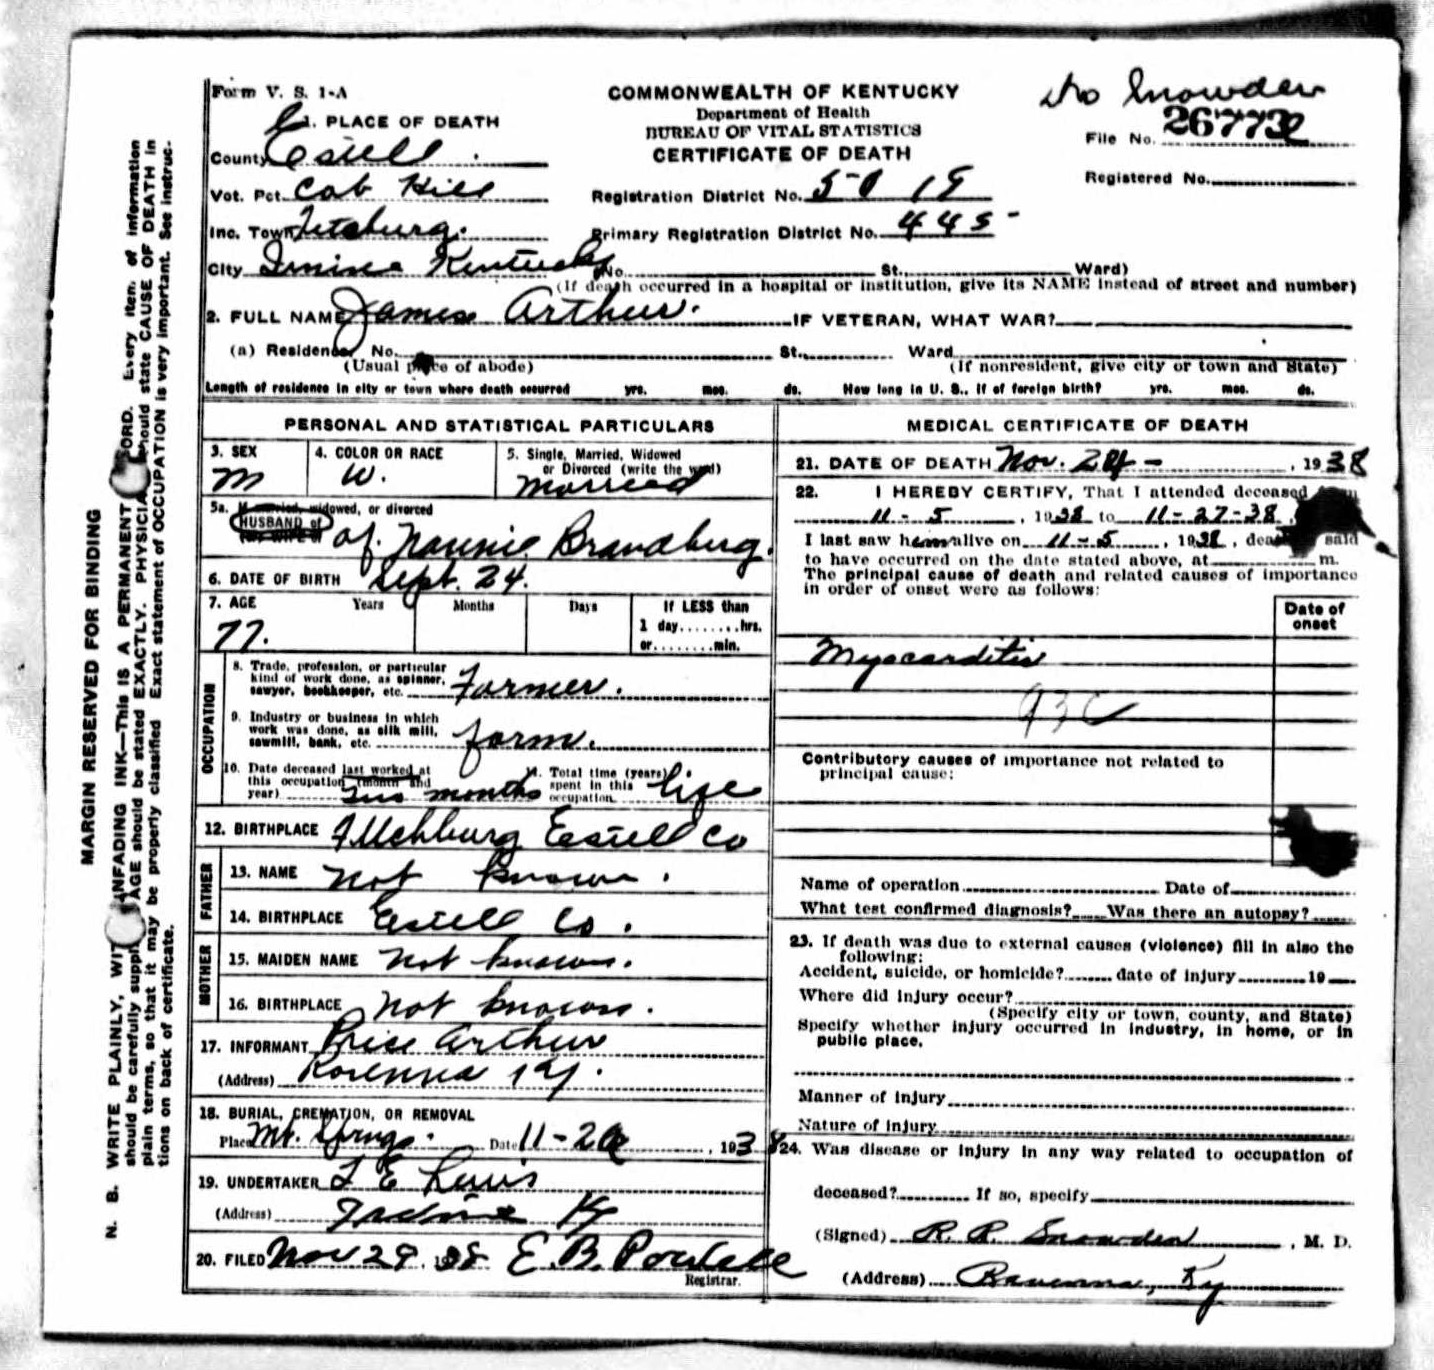 Form V. S. 1-A
COMMONWEALTH OF KENTUCKY
Department of Health
BUREAU OF VITAL STATISTICS
CERTIFICATE OF DEATH
Snowden
File No. 26773
Registered No.
1. PLACE OF DEATH
County Estell.
Vot. Pct. Cob Hill
Registration District No. 5019
Inc. Town
Primary Registration District No. 445-
City Kentucky No. St. Ward)
(If death occurred in a hospital or institution, give its NAME instead of street and number)
2. FULL NAME James Arthur. IF VETERAN, WHAT WAR?
(a) Residence No. St. Ward
(Usual place of abode) (If nonresident, give city or town and State)
Length of residence in city or town where death occurred yrs. mos. ds. How long in U. S., if of foreign birth? yrs. mos. ds.
PERSONAL AND STATISTICAL PARTICULARS
3. SEX M
4. COLOR OR RACE W.
5. Single, Married, Widowed
or Divorced (write the word)
Married
5a. If married, widowed, or divorced
HUSBAND of
(or) WIFE of of. Nannie Brandburg.
6. DATE OF BIRTH Sept. 24.
7. AGE Years Months Days If LESS than
1 day........hrs.
77. or........min.
OCCUPATION
8. Trade, profession, or particular
kind of work done, as spinner,
sawyer, bookkeeper, etc. Farmer.
9. Industry or business in which
work was done, as silk mill,
sawmill, bank, etc. farm.
10. Date deceased last worked at
this occupation (month and
year) months
11. Total time (years)
spent in this
occupation life
12. BIRTHPLACE Estell Co
FATHER
13. NAME Not known.
14. BIRTHPLACE Estell Co.
MOTHER
15. MAIDEN NAME Not known.
16. BIRTHPLACE Not known.
17. INFORMANT Price Arthur
(Address) Ky.
18. BURIAL, CREMATION, OR REMOVAL
Place Mt. Springs. Date 11-2 , 1938
19. UNDERTAKER L E Lewis
(Address) Ky
20. FILED Nov 29 1938 E. B. Powell
Registrar.
MEDICAL CERTIFICATE OF DEATH
21. DATE OF DEATH Nov. 24- , 1938
22. I HEREBY CERTIFY, That I attended deceased from
11-5 , 1938 to 11-27-38,
I last saw him alive on 11-5 , 1938, death said
to have occurred on the date stated above, at m.
The principal cause of death and related causes of importance
in order of onset were as follows:
Date of
onset
Myocarditis
93C
Contributory causes of importance not related to
principal cause:
Name of operation Date of
What test confirmed diagnosis? Was there an autopsy?
23. If death was due to external causes (violence) fill in also the
following:
Accident, suicide, or homicide? date of injury 19
Where did injury occur?
(Specify city or town, county, and State)
Specify whether injury occurred in industry, in home, or in
public place.
Manner of injury
Nature of injury
24. Was disease or injury in any way related to occupation of
deceased? If so, specify
(Signed) R. R. Snowden , M. D.
(Address) Ravenna, Ky
MARGIN RESERVED FOR BINDING
N. B. WRITE PLAINLY, WITH UNFADING INK—THIS IS A PERMANENT RECORD. Every item of information
should be carefully supplied. AGE should be stated EXACTLY. PHYSICIANS should state CAUSE OF DEATH in
plain terms, so that it may be properly classified. Exact statement of OCCUPATION is very important. See instruc-
tions on back of certificate.